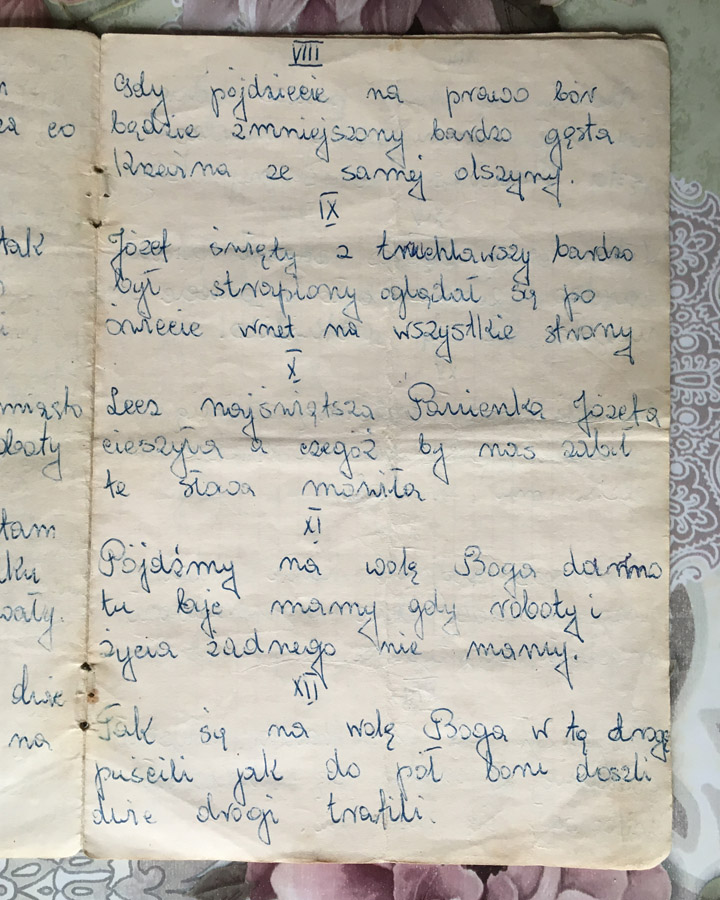 VIII
Gdy pójdziecie na prawo bór
bądzie zmniejszony bardzo gęsta
Krzewina ze samej olszyny.
IX
Józef święty z truchlawszy bardzo
był strapiony oglądał są po
świecie wnet na wszystkie strony
X
Lecz najświątsza Panienka Józefa
cieszyła a czegóż by nas zabił
te słowa mówiła
XI
Pójdźmy na wolę Boga darmo
tu łaje mamy gdy roboty i
życia żadnego nie mamy.
XII
Tak są na wolę Boga w tą drogę
puścili jak do pół boru doszli
dwie drogi trafili.
tak
miąsto
tam
dwie
na
co